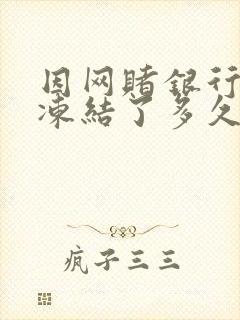 因网赌银行
凍結了多久
疯子三三